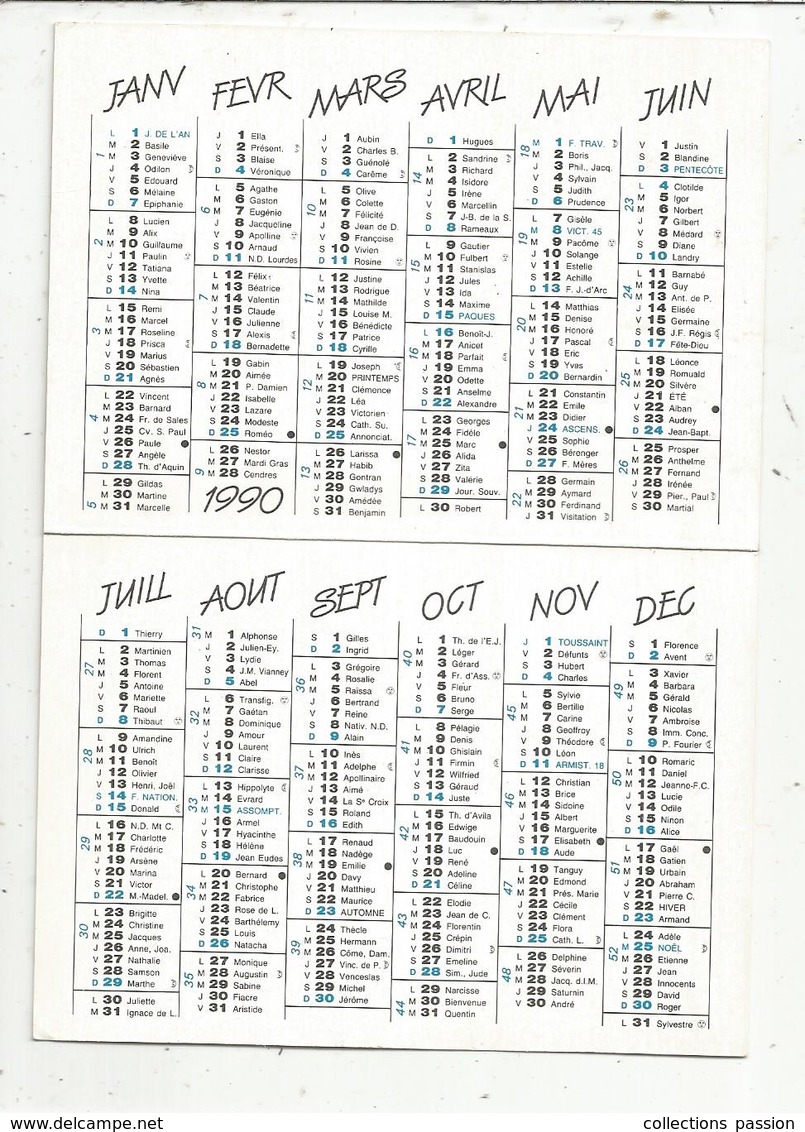 JANV
L 1 J. DE L'AN
M 2 Basile
1 M 3 Geneviève
J 4 Odilon
V 5 Edouard
S 6 Mélaine
D 7 Epiphanie
L 8 Lucien
M 9 Alix
2 M 10 Guillaume
J 11 Paulin
V 12 Tatiana
S 13 Yvette
D 14 Nina
L 15 Remi
M 16 Marcel
3 M 17 Roseline
J 18 Prisca
V 19 Marius
S 20 Sébastien
D 21 Agnès
L 22 Vincent
M 23 Barnard
4 M 24 Fr. de Sales
J 25 Cv. S. Paul
V 26 Paule
S 27 Angèle
D 28 Th. d'Aquin
L 29 Gildas
M 30 Martine
5 M 31 Marcelle
FEVR
J 1 Ella
V 2 Présent.
S 3 Blaise
D 4 Véronique
L 5 Agathe
M 6 Gaston
6 M 7 Eugénie
J 8 Jacqueline
V 9 Apolline
S 10 Arnaud
D 11 N.D. Lourdes
L 12 Félix
M 13 Béatrice
7 M 14 Valentin
J 15 Claude
V 16 Julienne
S 17 Alexis
D 18 Bernadette
L 19 Gabin
M 20 Aimée
8 M 21 P. Damien
J 22 Isabelle
V 23 Lazare
S 24 Modeste
D 25 Roméo
L 26 Nestor
M 27 Mardi Gras
9 M 28 Cendres
1990
MARS
J 1 Aubin
V 2 Charles B.
S 3 Guénolé
D 4 Carême
L 5 Olive
M 6 Colette
10 M 7 Félicité
J 8 Jean de D.
V 9 Françoise
S 10 Vivien
D 11 Rosine
L 12 Justine
M 13 Rodrigue
11 M 14 Mathilde
J 15 Louise M.
V 16 Bénédicte
S 17 Patrice
D 18 Cyrille
L 19 Joseph
M 20 PRINTEMPS
12 M 21 Clémence
J 22 Léa
V 23 Victorien
S 24 Cath. Su.
D 25 Annonciat.
L 26 Larissa
M 27 Habib
13 M 28 Gontran
J 29 Gwladys
V 30 Amédée
S 31 Benjamin
AVRIL
D 1 Hugues
L 2 Sandrine
M 3 Richard
14 M 4 Isidore
J 5 Irène
V 6 Marcellin
S 7 J-B. de la S.
D 8 Rameaux
L 9 Gautier
M 10 Fulbert
15 M 11 Stanislas
J 12 Jules
V 13 Ida
S 14 Maxime
D 15 PAQUES
L 16 Benoît-J.
M 17 Anicet
16 M 18 Parfait
J 19 Emma
V 20 Odette
S 21 Anselme
D 22 Alexandre
L 23 Georges
M 24 Fidèle
17 M 25 Marc
J 26 Alida
V 27 Zita
S 28 Valérie
D 29 Jour. Souv.
L 30 Robert
MAI
18 M 1 F. TRAV.
M 2 Boris
J 3 Phil., Jacq.
V 4 Sylvain
S 5 Judith
D 6 Prudence
L 7 Gisèle
19 M 8 VICT. 45
M 9 Pacôme
J 10 Solange
V 11 Estelle
S 12 Achille
D 13 F. J.-d'Arc
L 14 Matthias
20 M 15 Denise
M 16 Honoré
J 17 Pascal
V 18 Eric
S 19 Yves
D 20 Bernardin
L 21 Constantin
21 M 22 Emile
M 23 Didier
J 24 ASCENS.
V 25 Sophie
S 26 Bérenger
D 27 F. Mères
L 28 Germain
22 M 29 Aymard
M 30 Ferdinand
J 31 Visitation
JUIN
V 1 Justin
S 2 Blandine
D 3 PENTECÔTE
L 4 Clotilde
23 M 5 Igor
M 6 Norbert
J 7 Gilbert
V 8 Médard
S 9 Diane
D 10 Landry
L 11 Barnabé
24 M 12 Guy
M 13 Ant. de P.
J 14 Elisée
V 15 Germaine
S 16 J.F. Régis
D 17 Fête-Dieu
L 18 Léonce
25 M 19 Romuald
M 20 Silvère
J 21 ÉTÉ
V 22 Alban
S 23 Audrey
D 24 Jean-Bapt.
L 25 Prosper
26 M 26 Anthelme
M 27 Fernand
J 28 Irénée
V 29 Pier., Paul
S 30 Martial
JUILL
D 1 Thierry
L 2 Martinien
27 M 3 Thomas
M 4 Florent
J 5 Antoine
V 6 Mariette
S 7 Raoul
D 8 Thibaut
L 9 Amandine
28 M 10 Ulrich
M 11 Benoît
J 12 Olivier
V 13 Henri, Joël
S 14 F. NATION.
D 15 Donald
L 16 N.D. Mt C.
29 M 17 Charlotte
M 18 Frédéric
J 19 Arsène
V 20 Marina
S 21 Victor
D 22 M.-Madel.
L 23 Brigitte
30 M 24 Christine
M 25 Jacques
J 26 Anne, Joa.
V 27 Nathalie
S 28 Samson
D 29 Marthe
L 30 Juliette
M 31 Ignace de L.
AOUT
31 M 1 Alphonse
J 2 Julien-Ey.
V 3 Lydie
S 4 J.M. Vianney
D 5 Abel
L 6 Transfig.
32 M 7 Gaétan
M 8 Dominique
J 9 Amour
V 10 Laurent
S 11 Claire
D 12 Clarisse
L 13 Hippolyte
33 M 14 Evrard
M 15 ASSOMPT.
J 16 Armel
V 17 Hyacinthe
S 18 Hélène
D 19 Jean Eudes
L 20 Bernard
34 M 21 Christophe
M 22 Fabrice
J 23 Rose de L.
V 24 Barthélemy
S 25 Louis
D 26 Natacha
L 27 Monique
35 M 28 Augustin
M 29 Sabine
J 30 Fiacre
V 31 Aristide
SEPT
S 1 Gilles
D 2 Ingrid
L 3 Grégoire
36 M 4 Rosalie
M 5 Raïssa
J 6 Bertrand
V 7 Reine
S 8 Nativ. N.D.
D 9 Alain
L 10 Inès
37 M 11 Adelphe
M 12 Apollinaire
J 13 Aimé
V 14 La Se Croix
S 15 Roland
D 16 Edith
L 17 Renaud
38 M 18 Nadège
M 19 Emilie
J 20 Davy
V 21 Matthieu
S 22 Maurice
D 23 AUTOMNE
L 24 Thècle
39 M 25 Hermann
M 26 Côme, Dam.
J 27 Vinc. de P.
V 28 Venceslas
S 29 Michel
D 30 Jérôme
OCT
L 1 Th. de l'E.J.
40 M 2 Léger
M 3 Gérard
J 4 Fr. d'Ass.
V 5 Fleur
S 6 Bruno
D 7 Serge
L 8 Pélagie
41 M 9 Denis
M 10 Ghislain
J 11 Firmin
V 12 Wilfried
S 13 Géraud
D 14 Juste
L 15 Th. d'Avila
42 M 16 Edwige
M 17 Baudouin
J 18 Luc
V 19 René
S 20 Adeline
D 21 Céline
L 22 Elodie
43 M 23 Jean de C.
M 24 Florentin
J 25 Crépin
V 26 Dimitri
S 27 Emeline
D 28 Sim., Jude
L 29 Narcisse
44 M 30 Bienvenue
M 31 Quentin
NOV
J 1 TOUSSAINT
V 2 Défunts
S 3 Hubert
D 4 Charles
L 5 Sylvie
45 M 6 Bertille
M 7 Carine
J 8 Geoffroy
V 9 Théodore
S 10 Léon
D 11 ARMIST. 18
L 12 Christian
46 M 13 Brice
M 14 Sidoine
J 15 Albert
V 16 Marguerite
S 17 Elisabeth
D 18 Aude
L 19 Tanguy
47 M 20 Edmond
M 21 Prés. Marie
J 22 Cécile
V 23 Clément
S 24 Flora
D 25 Cath. L.
L 26 Delphine
48 M 27 Séverin
M 28 Jacq. d.I.M.
J 29 Saturnin
V 30 André
DEC
S 1 Florence
D 2 Avent
L 3 Xavier
49 M 4 Barbara
M 5 Gérald
J 6 Nicolas
V 7 Ambroise
S 8 Imm. Conc.
D 9 P. Fourier
L 10 Romaric
50 M 11 Daniel
M 12 Jeanne-F.C.
J 13 Lucie
V 14 Odile
S 15 Ninon
D 16 Alice
L 17 Gaël
51 M 18 Gatien
M 19 Urbain
J 20 Abraham
V 21 Pierre C.
S 22 HIVER
D 23 Armand
L 24 Adèle
52 M 25 NOËL
M 26 Etienne
J 27 Jean
V 28 Innocents
S 29 David
D 30 Roger
L 31 Sylvestre
collections passion